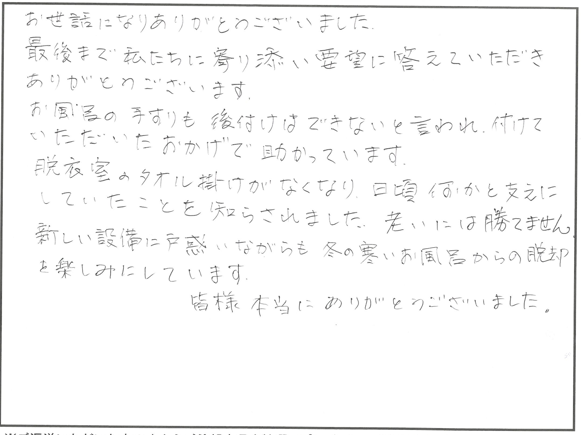 お世話になりありがとうございました.
最後まで私たちに寄り添い要望に答えていただき
ありがとうございます.
お風呂の手すりも後付けはできないと言われ.付けて
いただいたおかげで助かっています.
脱衣室のタオル掛けがなくなり.日頃何かと支えに
していたことを知らされました.老いには勝てません.
新しい設備に戸惑いながらも冬の寒いお風呂からの脱却
を楽しみにしています.
皆様本当にありがとうございました。